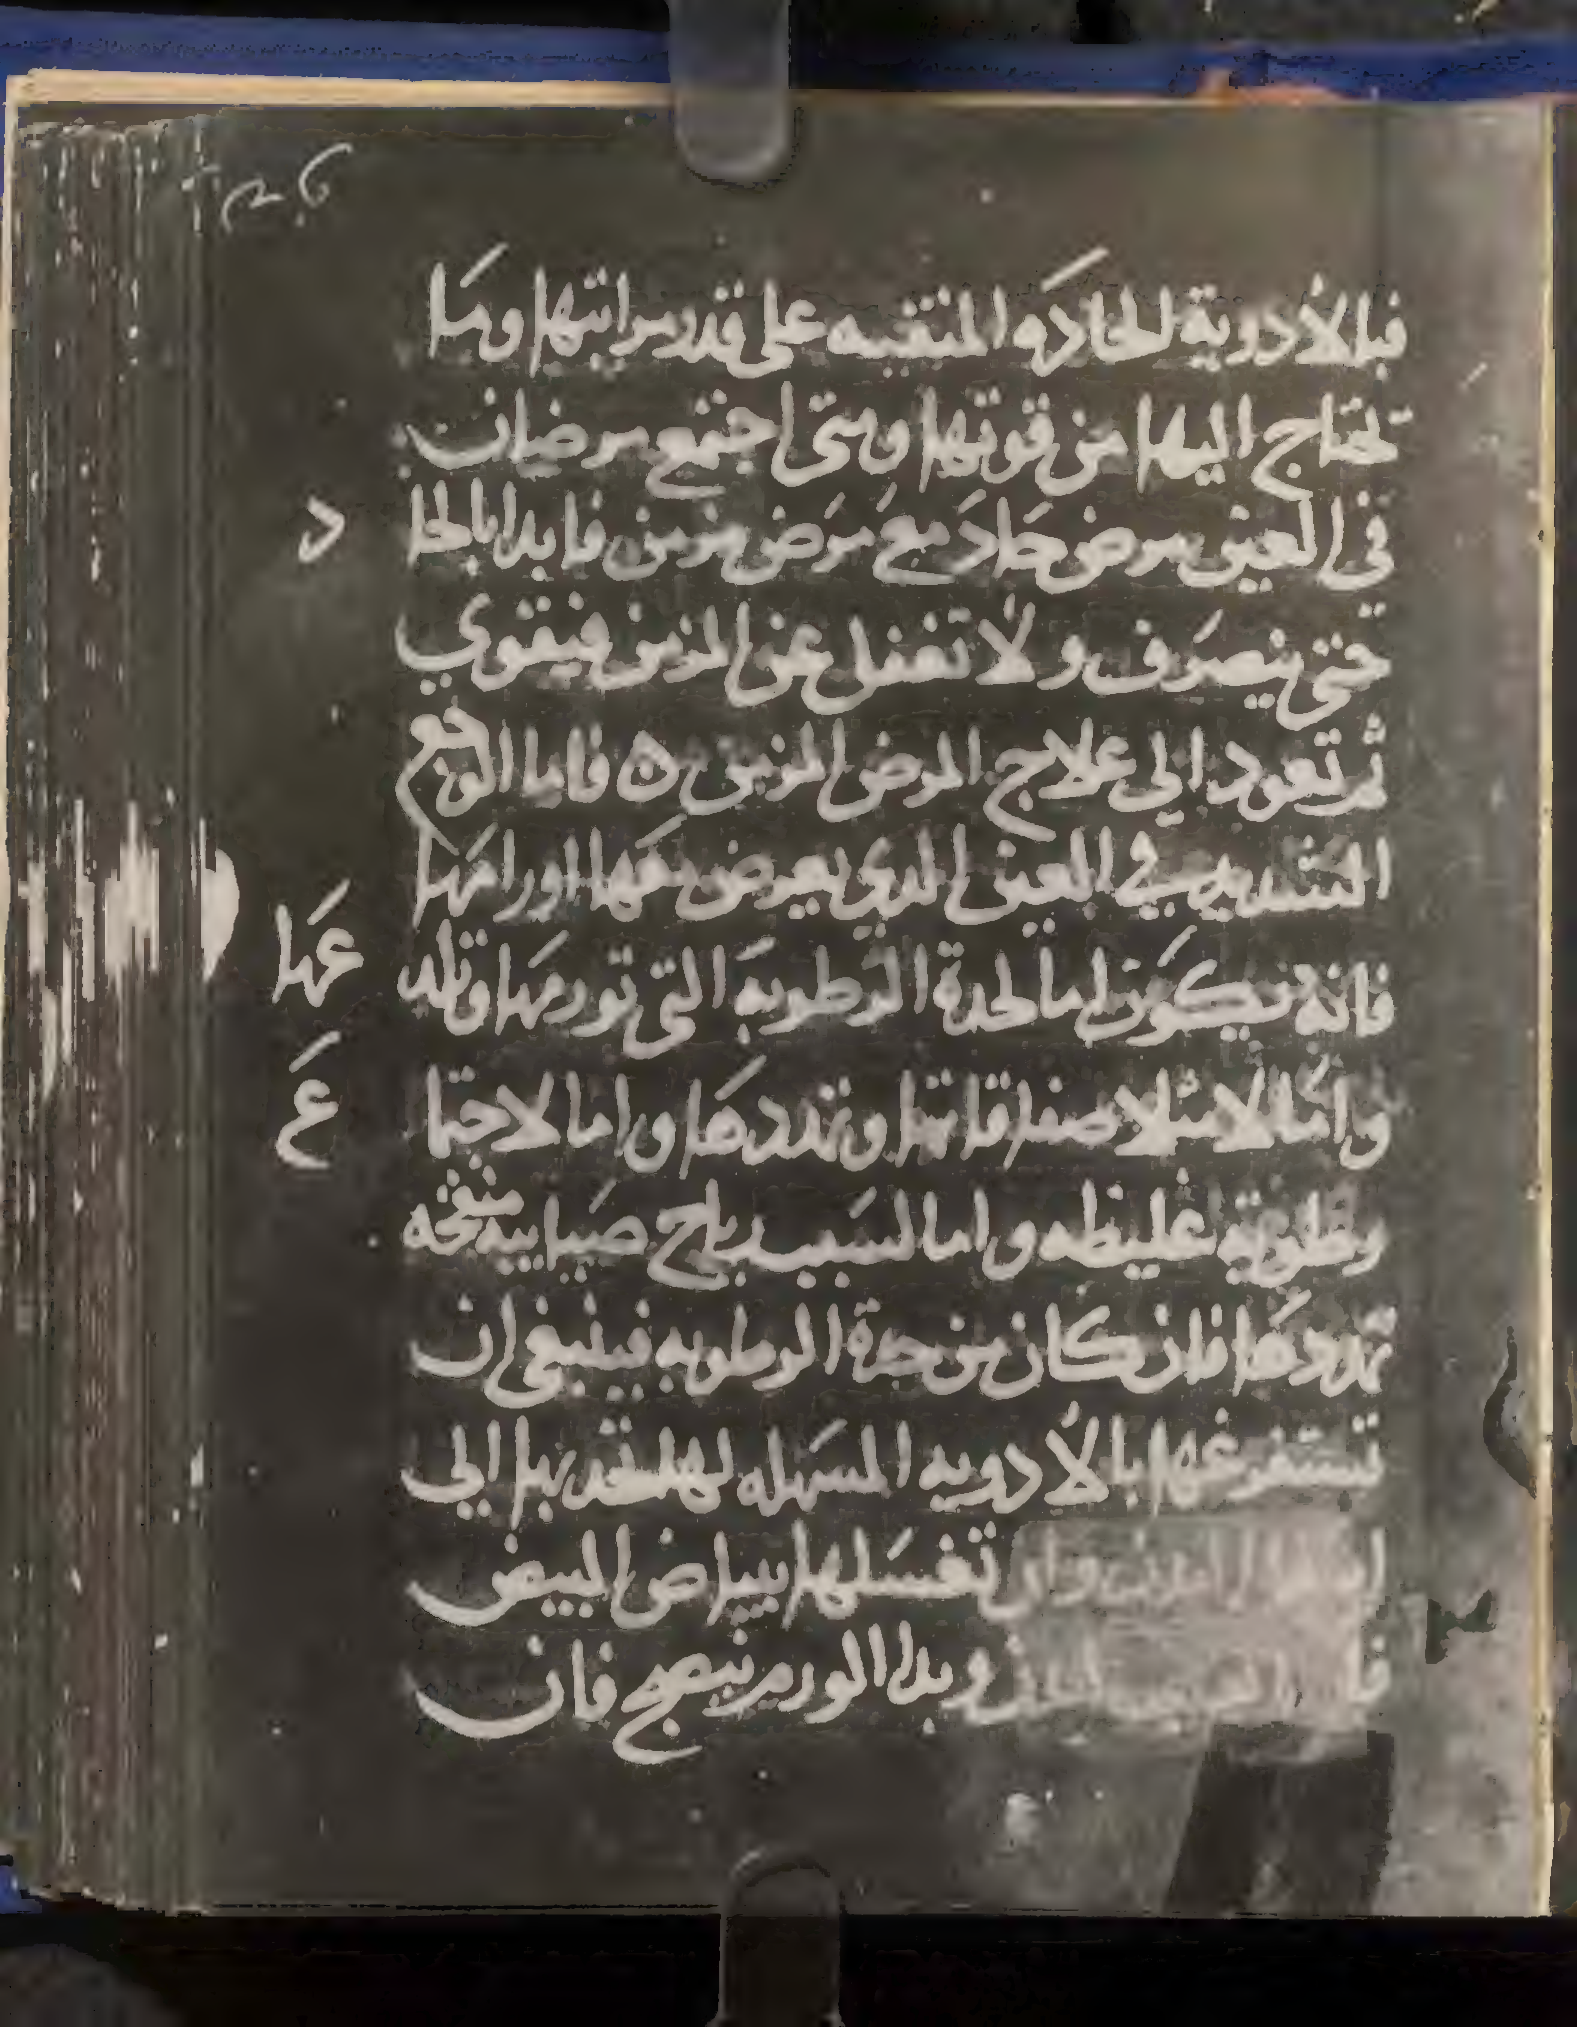 فبالأدوية الحادة والمنقيه على قدر مراتبها وما
تحتاج اليها من قوتها ومتى اجتمع مرضان
في العين مرض حاد مع مرض مزمن فابدا بالحا
د
حتى ينصرف ولا تغفل عن المزمن فيقوي
ثم تعود الي علاج المرض المزمن ه فاما الوجع
الشديد في العين الدي يعرض معها اورامها
فانه يكون اما لحدة الرطوبة التي تورمها وتلد
عها
واما لامتلا صفاقاتها وتمددها واما لاجتما
ع
رطوبة غليظه واما لسبب رياح ضبابيه منفخه
تمددها فان كان من حدة الرطوبه فينبغي ان
تستفرغها بالأدويه المسهله لها بها الي
وان تغسلها ببياض البيض
وبدا الورم ينضج فان